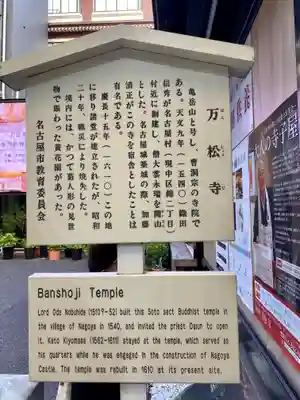 万松寺
亀岳山と号し、曹洞宗の寺院で
ある。天文九年(一五四〇)織田
信秀が名古屋村(現中区錦二丁目)
付近に創建し、僧大雲永瑞を開山
とした。名古屋城築城の際、加藤
清正がこの寺を宿舎としたことは
有名である。
慶長十五年(一六一〇)この地
に移り諸堂が建立されたが、昭和
二十年、戦災により焼失した。
境内には、からくり人形の見世
物で賑わった黄花園があった。
名古屋市教育委員会
Banshoji Temple
Lord Oda Nobuhide (1510?-52) built this Soto sect Buddhist temple in
the village of Nagoya in 1540, and invited the priest Daiun to open
it. Kato Kiyomasa (1562-1611) stayed at the temple, which served as
his quarters while he was engaged in the construction of Nagoya
Castle. The temple was rebuilt in 1610 at its present site.
大人の寺子屋